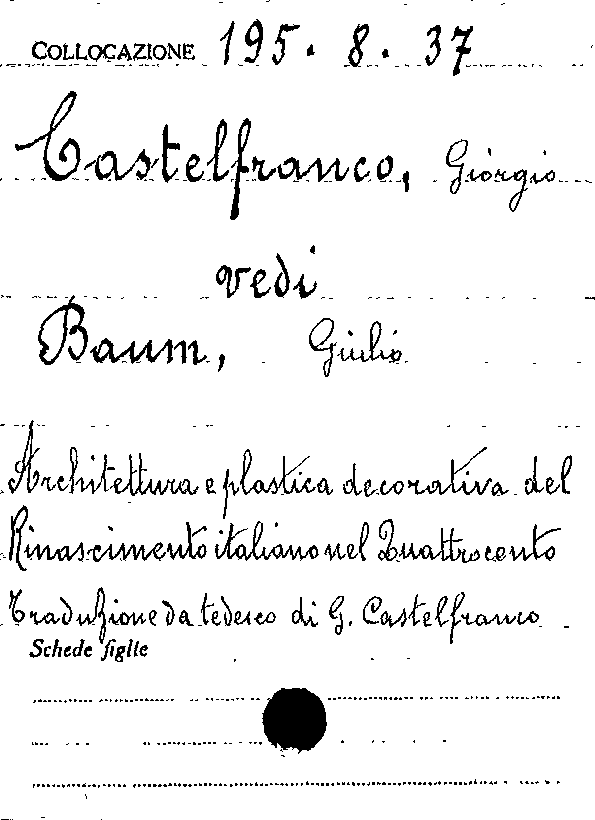 COLLOCAZIONE 195. 8. 37
Castelfranco, Giorgio
vedi
Baum, Giulio
Architettura e plastica decorativa del
Rinascimento italiano nel Quattrocento
Traduzione da tedesco di G. Castelfranco
Schede figlie